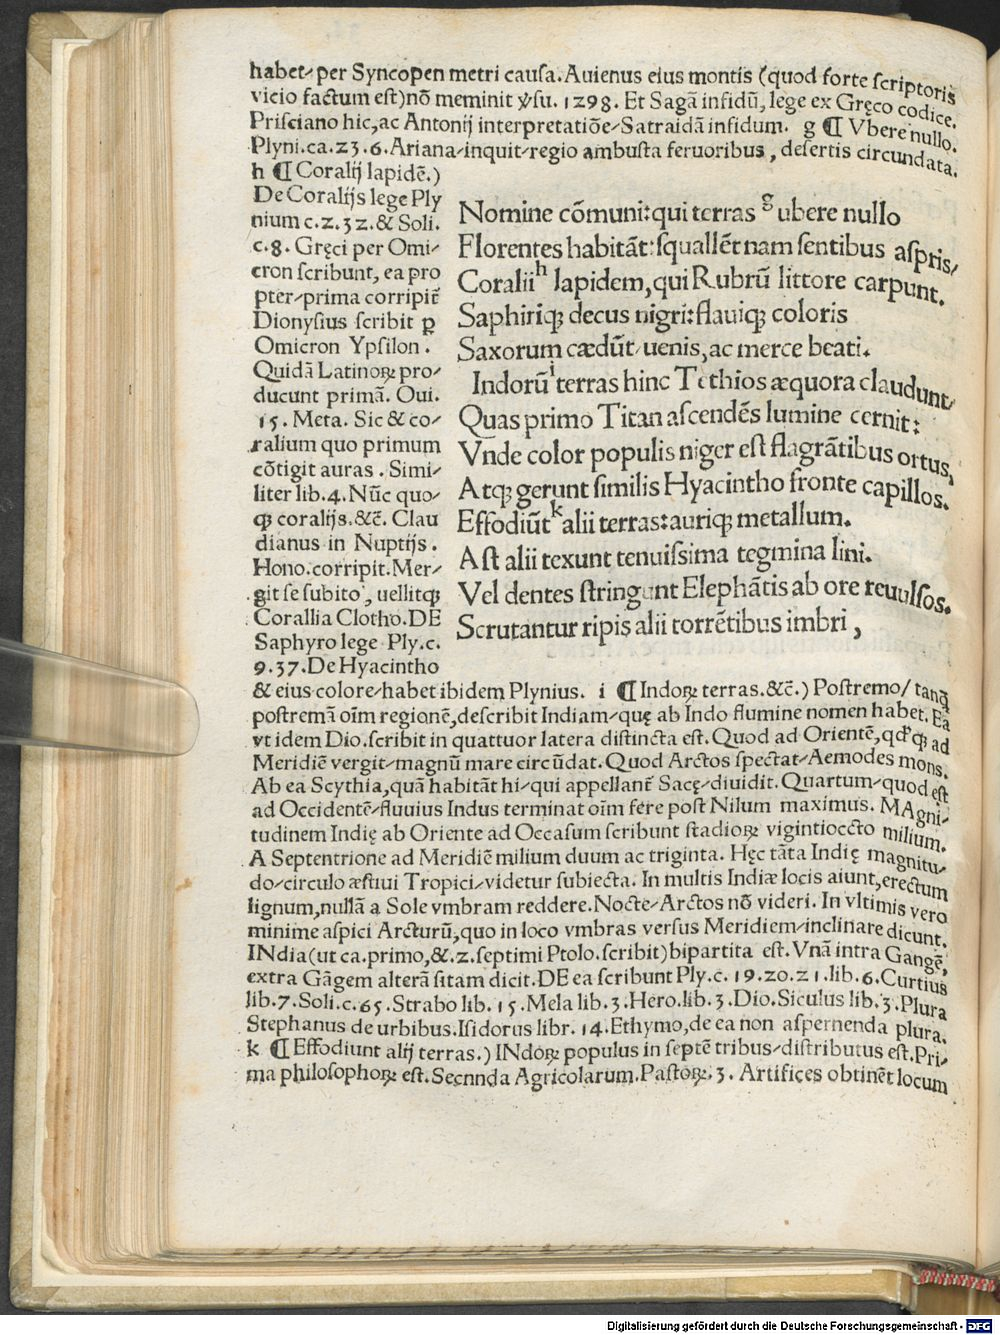 habet/per Syncopen metri causa. Auienus eius montis (quod forte scriptoris
vicio factum est) nō meminit ꝟsu. 1298. Et Sagā infidū, lege ex Gręco codice.
Prisciano hic, ac Antonij interpretatiōe/Satraidā infidum. g ¶ Vbere nullo.
Plyni. ca. 23. 6. Ariana/inquit/regio ambusta feruoribus, desertis circundata.
h ¶ Coralij lapidē.)
De Coralijs lege Ply
nium c. 2. 32. & Soli.
c. 8. Gręci per Omi/
cron scribunt, ea pro
pter/prima corripit̄
Dionysius scribit ꝑ
Omicron Ypsilon.
Quidā Latinoꝝ pro/
ducunt primā. Oui.
15. Meta. Sic & co/
ralium quo primum
cōtigit auras. Simi/
liter lib. 4. Nūc quo/
qꝫ coralijs. &c̄. Clau
dianus in Nuptijs.
Hono. corripit. Mer/
git se subito, uellitqꝫ
Corallia Clotho. DE
Saphyro lege Ply. c.
9. 37. De Hyacintho
Nomine cōmuni: qui terras g ubere nullo
Florentes habitāt: squallēt nam sentibus aspris/
Coralii h lapidem, qui Rubrū littore carpunt.
Saphiriqꝫ decus nigri: flauiqꝫ coloris
Saxorum cædūt/uenis, ac merce beati.
Indorū i terras hinc Tethios æquora claudunt/
Quas primo Titan ascendēs lumine cernit:
Vnde color populis niger est flagrātibus ortus,
Atqꝫ gerunt similis Hyacintho fronte capillos.
Effodiūt k alii terras: auriqꝫ metallum.
Ast alii texunt tenuissima tegmina lini.
Vel dentes stringunt Elephātis ab ore reuulsos.
Scrutantur ripis alii torrētibus imbri,
& eius colore/habet ibidem Plynius. i ¶ Indoꝝ terras. &c̄.) Postremo/tanqꝫ
postremā oīm regionē, describit Indiam/quę ab Indo flumine nomen habet. Ea
vt idem Dio. scribit in quattuor latera distincta est. Quod ad Orientē, qd̕ qꝫ ad
Meridiē vergit/magnū mare circūdat. Quod Arctos spectat/Aemodes mons.
Ab ea Scythia, quā habitāt hi/qui appellant̄ Sacę/diuidit. Quartum/quod est
ad Occidentē/fluuius Indus terminat oīm fere post Nilum maximus. MAgni/
tudinem Indię ab Oriente ad Occasum scribunt stadioꝝ vigintioccto milium.
A Septentrione ad Meridiē milium duum ac triginta. Hęc tāta Indię magnitu/
do/circulo æstiui Tropici/videtur subiecta. In multis Indiæ locis aiunt, erectum
lignum, nullā a Sole vmbram reddere. Nocte/Arctos nō videri. In vltimis vero
minime aspici Arcturū, quo in loco vmbras versus Meridiem/inclinare dicunt.
INdia (ut ca. primo, &. 2. septimi Ptolo. scribit) bipartita est. Vnā intra Gangē,
extra Gāgem alterā sitam dicit. DE ea scribunt Ply. c. 19. 20. 21. lib. 6. Curtius
lib. 7. Soli. c. 65. Strabo lib. 15. Mela lib. 3. Hero. lib. 3. Dio. Siculus lib. 3. Plura
Stephanus de urbibus. Isidorus libr. 14. Ethymo, de ea non aspernenda plura.
k ¶ Effodiunt alij terras.) INdoꝝ populus in septē tribus/distributus est. Pri/
ma philosophoꝝ est. Secnnda Agricolarum. Pastoꝝ. 3. Artifices obtinēt locum
Digitalisierung gefördert durch die Deutsche Forschungsgemeinschaft - DFG